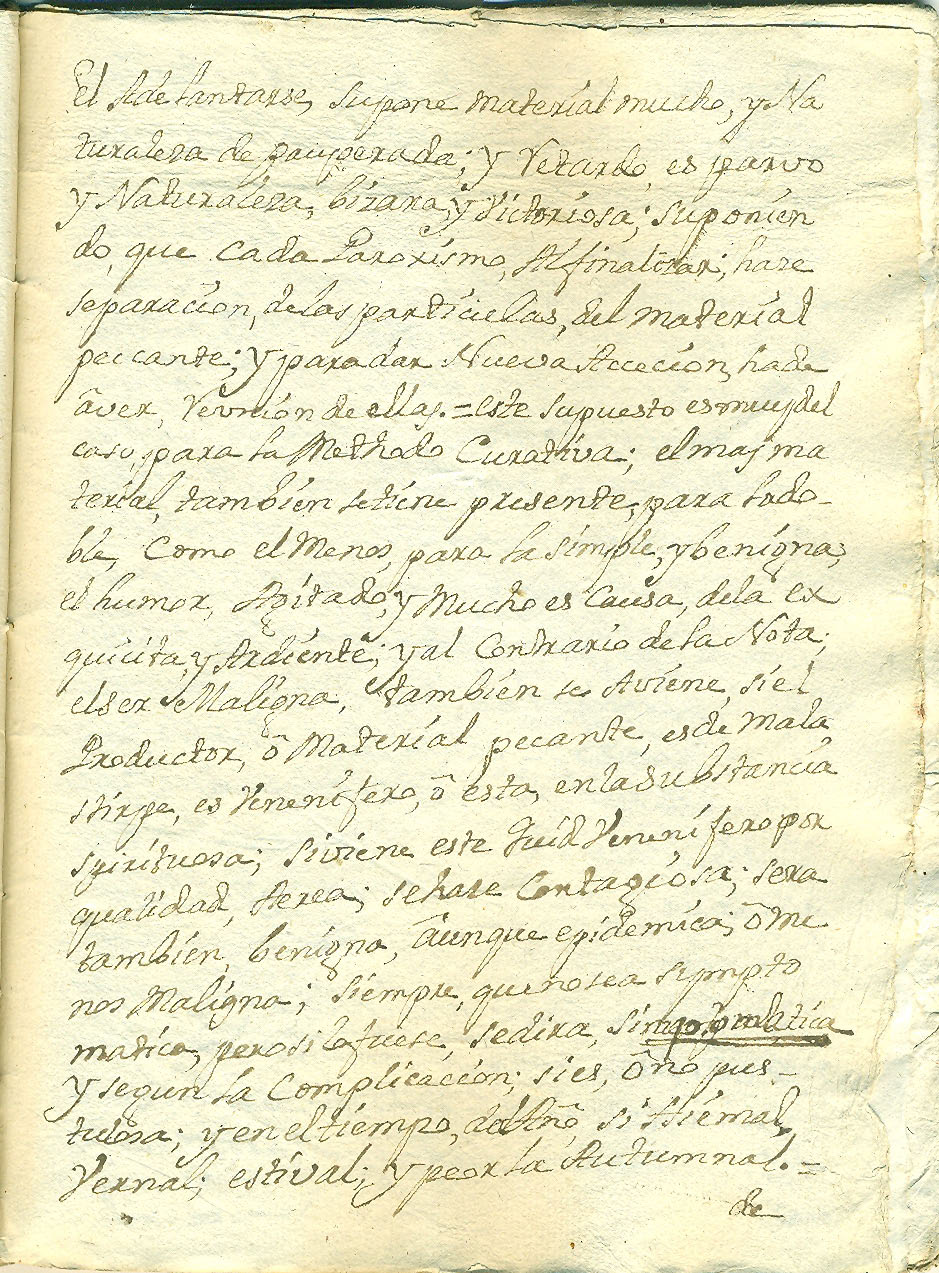 El Adelantarse, supone material mucho, y Na
turaleza depauperada; y Retardo, es parvo
y Naturaleza, bizara, y Victoriosa; suponien
do, que cada Paroxismo, Al finalizar; haze
separacion, de las particulas, del material
peccante; y para dar Nueva Accecion, ha de
âver, reunion de ellas. = este supuesto es muy del
caso, para la Methodo Curativa; el mas ma
terial, tambien se tiene presente, para la do-
ble, Como el Menos, para la simple, y benigna;
el humor, Agitado, y Mucho es Causa, de la ex
quicita, y Ardiente; y al Contrario de la Nota;
el ser Maligna, tambien se Aviene, si el
Productor, ô Material pecante, es de mala
stirpe, es Venenifero, ô esta, en la substancia
spirituosa; si viene este quid Venenifero por
qualidad, Aerea; se haze Contagiosa; sera
tambien, benigna, âunque epidemica; ô me
nos Maligna; siempre, que no sea sympto
matica, pero si lo fuese, se dira,
y segun la Complicacion; si es, ô no pus-
tulosa; y en el tiempo, del Año si Hiemal,
Vernal; estival; y peor la Autumnal. =
de